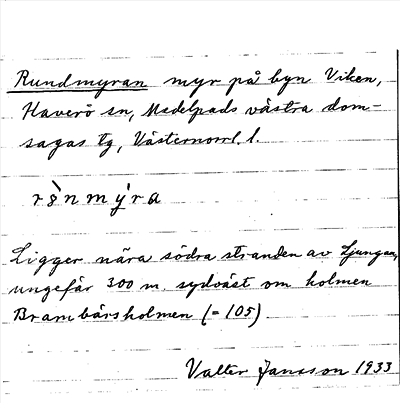 Rundmyran myr på byn Viken,
Haverö sn, Medelpads västra dom-
sagas tg, Västernorrl. l.
rònmýra
Ligger nära södra stranden av Ljungan,
ungefär 300 m. sydväst om holmen
Brambärsholmen (= 105).
Valter Jansson 1933